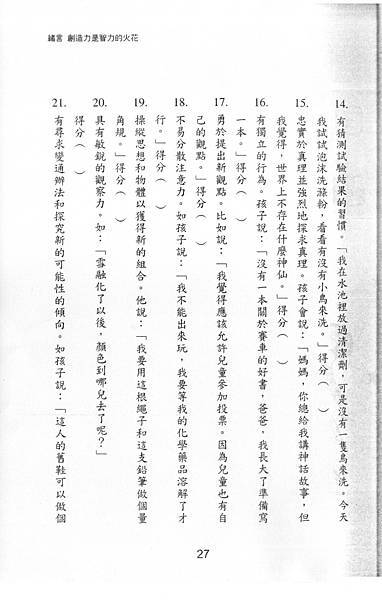 緒言 創造力是智力的火花
14. 有猜測試驗結果的習慣。「我在水池裡放過清潔劑，可是沒有一隻鳥來洗。今天
我試試泡沫洗滌粉，看看有沒有小鳥來洗。」得分（　）
15. 忠實於真理並強烈地探求真理。孩子會說：「媽媽，你總給我講神話故事，但
我覺得，世界上不存在什麼神仙。」得分（　）
16. 有獨立的行為。孩子說：「沒有一本關於賽車的好書，爸爸，我長大了準備寫
一本。」得分（　）
17. 勇於提出新觀點。比如說：「我覺得應該允許兒童參加投票。因為兒童也有自
己的觀點。」得分（　）
18. 不易分散注意力。如孩子說：「我不能出來玩，我要等我的化學藥品溶解了才
行。」得分（　）
19. 操縱思想和物體以獲得新的組合。他說：「我要用這根繩子和這支鉛筆做個量
角規。」得分（　）
20. 具有敏銳的觀察力。如：「雪融化了以後，顏色到哪兒去了呢？」
得分（　）
21. 有尋求變通辦法和探究新的可能性的傾向。如孩子說：「這人的舊鞋可以做個
27